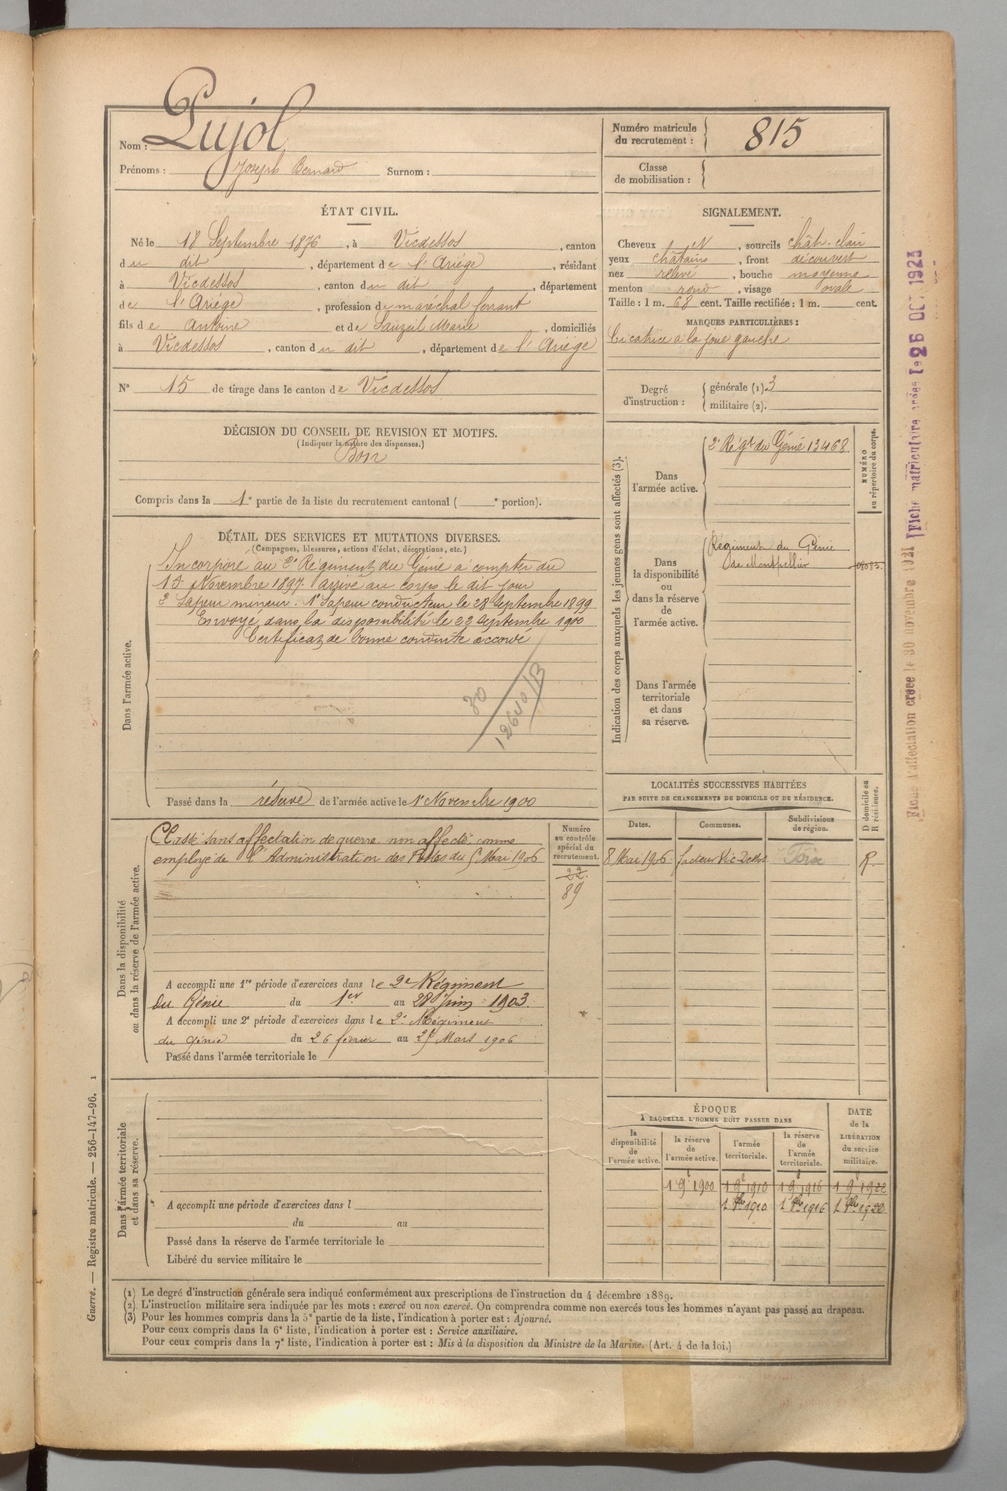 Nom : Pujol
Prénoms : Joseph Bernard Surnom :
Numéro matricule du recrutement : 815
Classe de mobilisation :
ÉTAT CIVIL.
Né le 18 Septembre 1876, à Vicdessos, canton
du dit, département de l'Ariège, résidant
à Vicdessos, canton du dit, département
de l'Ariège, profession de maréchal ferrant
fils de Antoine et de Sauzeil Marie, domiciliés
à Vicdessos, canton du dit, département de l'Ariège
N° 15 de tirage dans le canton de Vicdessos
SIGNALEMENT.
Cheveux N, sourcils chât. clair
yeux châtains, front découvert
nez relevé, bouche moyenne
menton rond, visage ovale
Taille : 1 m. 68 cent. Taille rectifiée : 1 m. cent.
MARQUES PARTICULIÈRES :
Cicatrice à la joue gauche
Degré d'instruction :
générale (1). 3
militaire (2).
DÉCISION DU CONSEIL DE REVISION ET MOTIFS.
(Indiquer la nature des dispenses.)
Bon
Compris dans la 1e partie de la liste du recrutement cantonal ( e portion).
DÉTAIL DES SERVICES ET MUTATIONS DIVERSES.
(Campagnes, blessures, actions d'éclat, décorations, etc.)
Dans l'armée active.
Incorporé au 2e Régiment du Génie à compter du
15 Novembre 1897 arrivé au corps le dit jour
2e Sapeur mineur. 1er Sapeur conducteur le 28 Septembre 1899
Envoyé dans la disponibilité le 22 Septembre 1900
Certificat de bonne conduite accordé
Passé dans la réserve de l'armée active le 1er Novembre 1900
Indication des corps auxquels les jeunes gens sont affectés (3).
NUMÉRO au répertoire du corps.
Dans l'armée active.
2e Régt du Génie 13468
Dans la disponibilité ou dans la réserve de l'armée active.
Régiment du Génie
de Montpellier
Dans l'armée territoriale et dans sa réserve.
Dans la disponibilité ou dans la réserve de l'armée active.
Classé sans affectation de guerre non affecté comme
employé de l'Administration des Postes du 5 Mai 1906
Numéro au contrôle spécial du recrutement.
22
89
A accompli une 1re période d'exercices dans le 2e Régiment
du Génie du 1er au 28 Juin 1903.
A accompli une 2e période d'exercices dans le 2e Régiment
du Génie du 26 février au 25 Mars 1906
Passé dans l'armée territoriale le
LOCALITÉS SUCCESSIVES HABITÉES
PAR SUITE DE CHANGEMENTS DE DOMICILE OU DE RÉSIDENCE.
D domicile ou R résidence.
Dates. Communes. Subdivisions de région.
8 Mai 1906 facteur Vic-Dessos Foix R.
Dans l'armée territoriale et dans sa réserve.
A accompli une période d'exercices dans l
du au
Passé dans la réserve de l'armée territoriale le
Libéré du service militaire le
ÉPOQUE
À LAQUELLE L'HOMME DOIT PASSER DANS
DATE de la LIBÉRATION du service militaire.
la disponibilité de l'armée active. la réserve de l'armée active. l'armée territoriale. la réserve de l'armée territoriale.
1 9e 1900 1 9e 1910 1 9e 1916 1 9e 1922
(1) Le degré d'instruction générale sera indiqué conformément aux prescriptions de l'instruction du 4 décembre 1889.
(2). L'instruction militaire sera indiquée par les mots : exercé ou non exercé. On comprendra comme non exercés tous les hommes n'ayant pas passé au drapeau.
(3) Pour les hommes compris dans la 5e partie de la liste, l'indication à porter est : Ajourné.
Pour ceux compris dans la 6e liste, l'indication à porter est : Service auxiliaire.
Pour ceux compris dans la 7e liste, l'indication à porter est : Mis à la disposition du Ministre de la Marine. (Art. 4 de la loi.)
Guerre. — Registre matricule. — 256-147-96. 1
Fiche matriculaire créée le 26 OCT 1923
Fiche d'affectation créée le 30 novembre 1921